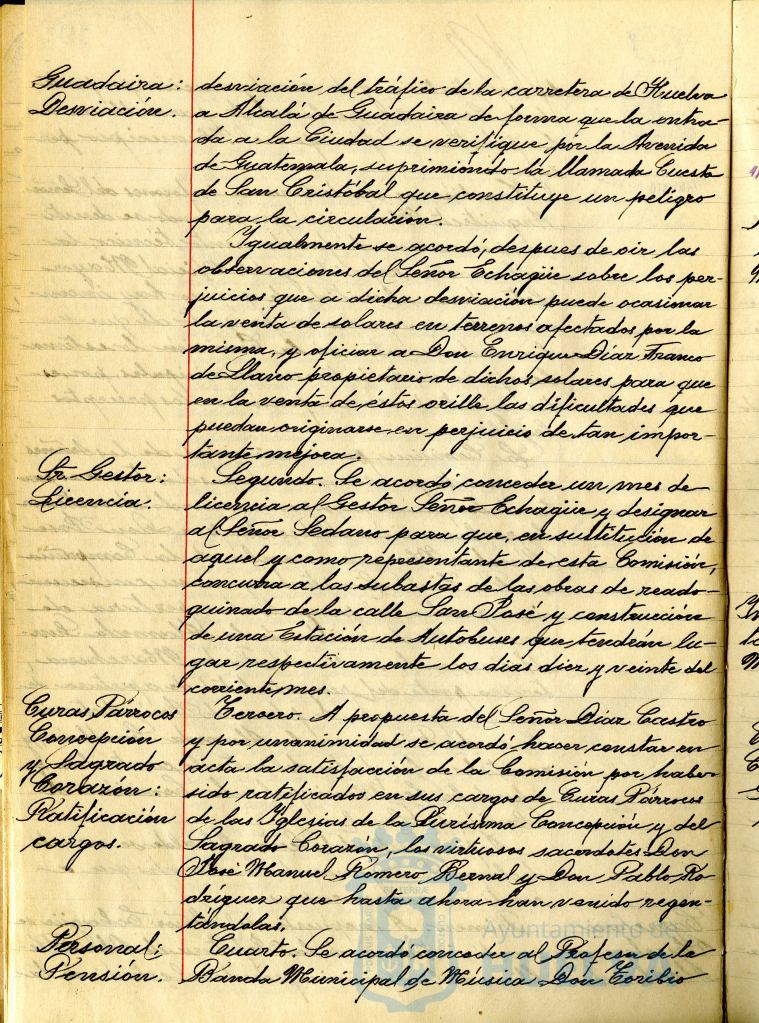 Guadaira:
Desviación.
desviación del tráfico de la carretera de Huelva
a Alcalá de Guadaira de forma que la entra-
da a la Ciudad se verifique por la Avenida
de Guatemala, suprimiendo la llamada Cuesta
de San Cristóbal que constituye un peligro
para la circulación.
Igualmente se acordó, despues de oir las
observaciones del Señor Echagüe sobre los per-
juicios que a dicha desviación puede ocasionar
la venta de solares en terrenos afectados por la
misma, y oficiar a Don Enrique Díaz Franco
de Llanco propietario de dichos solares para que
en la venta de éstos orille las dificultades que
puedan originarse en perjuicio de tan impor-
tante mejora.
Sr. Gestor:
Licencia.
Segundo. Se acordó conceder un mes de
licencia al Gestor Señor Echagüe y designar
al Señor Sedano para que, en sustitución de
aquel y como representante de esta Comisión,
concurra a las subastas de las obras de reado-
quinado de la calle San José y construcción
de una Estación de Autobuses que tendrán lu-
gar respectivamente los dias diez y veinte del
corriente mes.
Curas Párrocos
Concepción
y Sagrado
Corazón:
Ratificación
cargos.
Tercero. A propuesta del Señor Díaz Castro
y por unanimidad se acordó hacer constar en
acta la satisfacción de la Comisión por haber
sido ratificados en sus cargos de Curas Párrocos
de las Iglesias de la Purísima Concepción y del
Sagrado Corazón, los virtuosos sacerdotes Don
José Manuel Romero Bernal y Don Pablo Ro-
dríguez que hasta ahora han venido regen-
tándolas.
Personal:
Pensión.
Cuarto. Se acordó conceder al Profesor de la
Banda Municipal de Música Don Toribio
Ayuntamiento de